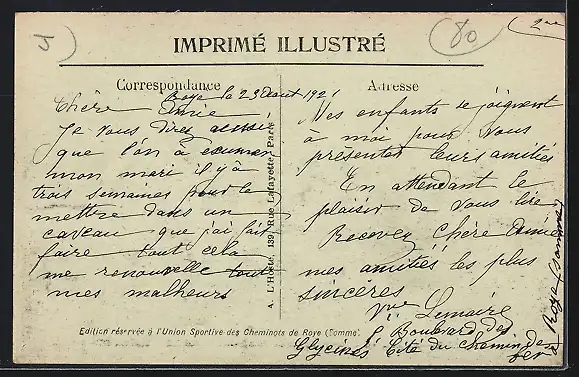 IMPRIMÉ ILLUSTRÉ
80
2me
Correspondance
Adresse
Roye le 23 Aout 192
Chère Amie
Je vous dirai aussi
que l'on à exumer
mon mari il y à
trois semaines pour le
mettre dans un
caveau que j'ai fait
faire tout cela
me renouvelle tout
mes malheurs
A. L'Hoste, 139, Rue Lafayette, Paris
Mes enfants se joignent
à moi pour vous
présenter leurs amitiés
En attendant le
plaisir de vous lire
Recevez chère Amie
mes amitiés les plus
sincères
Vve Lemaire
Boulevard des
Glycines Cité du Chemin de
fer
à Roye (Somme)
Edition réservée à l'Union Sportive des Cheminots de Roye (Somme).